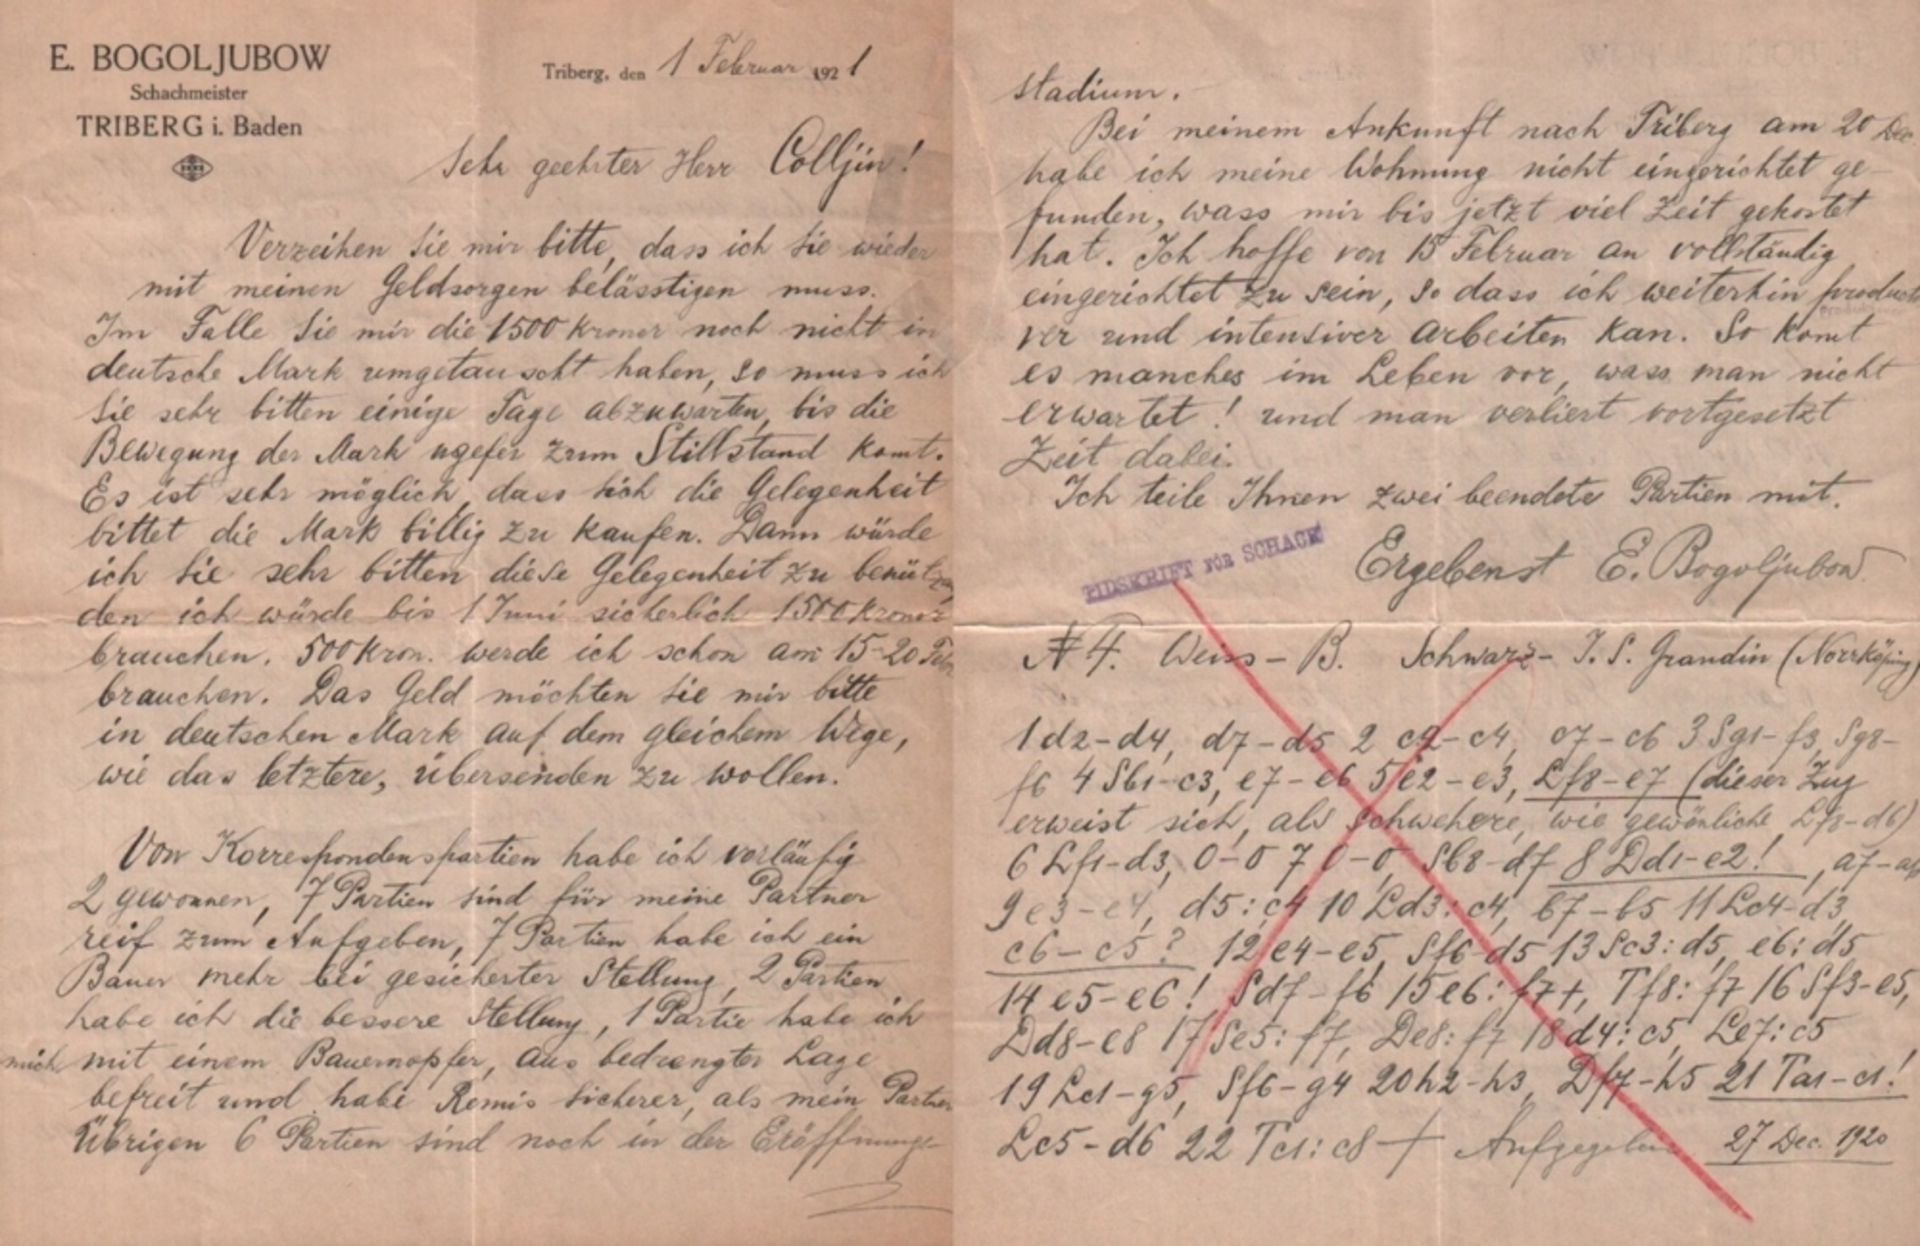 E. BOGOLJUBOW
Schachmeister
TRIBERG i. Baden
Triberg, den 1 Februar 1921
Sehr geehrter Herr Colljin!
Verzeihen Sie mir bitte, dass ich Sie wieder
mit meinen Geldsorgen belässtigen muss.
Im Falle Sie mir die 1500 Kroner noch nicht in
deutsche Mark umgetauscht haben, so muss ich
Sie sehr bitten einige Tage abzuwarten, bis die
Bewegung der Mark ugefer zum Stillstand komt.
Es ist sehr möglich, dass sich die Gelegenheit
bittet die Mark billig zu kaufen. Dann würde
ich Sie sehr bitten diese Gelegenheit zu benützen
den ich würde bis 1 Juni sicherlich 1500 Kronor
brauchen. 500 Kron. werde ich schon am 15-20 Febr
brauchen. Das Geld möchten Sie mir bitte
in deutschen Mark auf dem gleichem Wege,
wie das letztere, übersenden zu wollen.
Von Korrespondenspartien habe ich vorläufig
2 gewonnen, 7 Partien sind für meine Partner
reif zum Aufgeben, 7 Partien habe ich ein
Bauer mehr bei gesicherter Stellung, 2 Partien
habe ich die bessere Stellung, 1 Partie habe ich
mich mit einem Bauernopfer, aus bedrengter Lage
befreit und habe Remis sicherer, als mein Partner
Übrigen 6 Partien sind noch in der Eröffnungs-
stadium.
Bei meinem Ankunft nach Triberg am 20 Dec.
habe ich meine Wohnung nicht eingerichtet ge-
funden, wass mir bis jetzt viel Zeit gekostet
hat. Ich hoffe von 15 Februar an vollständig
eingerichtet zu sein, so dass ich weiterhin producti
ver und intensiver arbeiten kan. So komt
es manches im Leben vor, wass man nicht
erwartet! und man verliert vortgesetzt
Zeit dabei.
Ich teile Ihnen zwei beendete Partien mit.
TIDSKRIFT FÖR SCHACK
Ergebenst E. Bogoljubow
N 4. Weiss - B. Schwarz - J. S. Grandin (Norrköping)
1 d2-d4, d7-d5 2 c2-c4, c7-c6 3 Sg1-f3, Sg8-
f6 4 Sb1-c3, e7-e6 5 e2-e3, Lf8-e7 (dieser Zug
erweist sich, als schwehere, wie gewönliche Lf8-d6)
6 Lf1-d3, 0-0 7 0-0, Sb8-d7 8 Dd1-e2!, a7-a6
9 e3-e4, d5:c4 10 Ld3:c4, b7-b5 11 Lc4-d3,
c6-c5? 12 e4-e5, Sf6-d5 13 Sc3:d5, e6:d5
14 e5-e6! Sd7-f6 15 e6:f7+, Tf8:f7 16 Sf3-e5,
Dd8-e8 17 Se5:f7, De8:f7 18 d4:c5, Le7:c5
19 Lc1-g5, Sf6-g4 20 h2-h3, Df7-h5 21 Ta1-c1!
Lc5-d6 22 Tc1:c8+ Aufgegeben 27 Dec. 1920